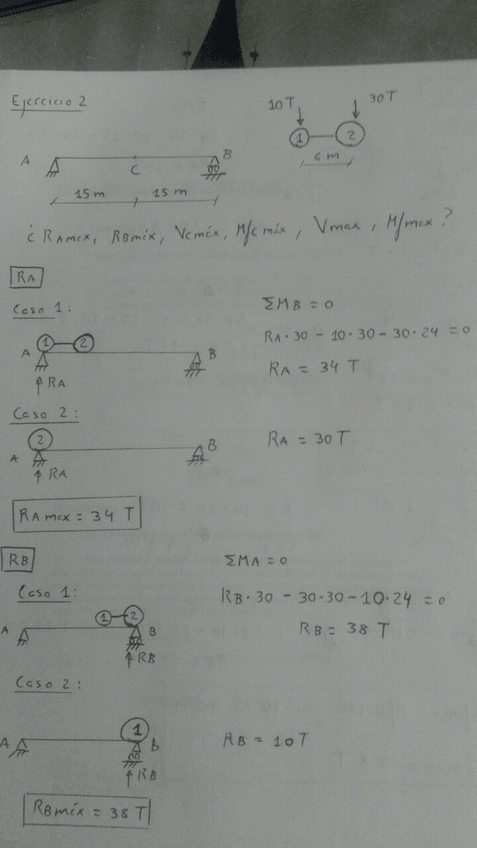 Ejercicio 2
10T 30T
1 2
A C B
6 m
15 m 15 m
¿ RAmax, RBmáx, Vcmáx, Mfcmáx, Vmax, Mfmax?
RA
Caso 1:
ΣMB = 0
1 2
RA·30 - 10·30 - 30·24 = 0
A B
RA = 34 T
RA
Caso 2:
2
RA = 30T
A B
RA
RAmax = 34 T
RB
ΣMA = 0
Caso 1:
RB·30 - 30·30 - 10·24 = 0
1 2
A B
RB = 38 T
RB
Caso 2:
1
A B
RB = 10T
RB
RBmáx = 38 T